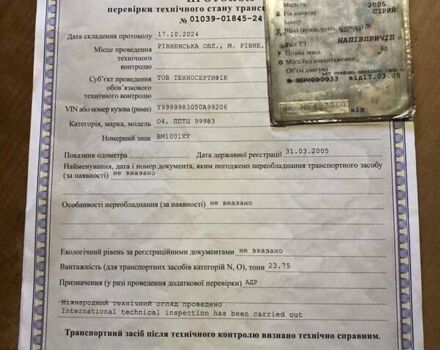 ПРОТОКОЛ
перевірки технічного стану
№ 01039-01845-24
Дата складення протоколу 17.10.2024
Місце проведення технічного контролю РІВНЕНСЬКА ОБЛ., М. РІВНЕ,
Суб'єкт проведення обов'язкового технічного контролю ТОВ ТЕХНОСЕРТИФІК
VIN або номер кузова (рами) Y9999983050A99206
Категорія, марка, модель О4, ППТЦ 99983
Номерний знак ВМ1001ХХ
Показник одометра Дата державної реєстрації 31.03.2005
Найменування, дата і номер документа, яким погоджено переобладнання транспортного засобу
(за наявності) не вказано
Особливості переобладнання (за наявності) не вказано
Екологічний рівень за реєстраційними документами не вказано
Вантажність (для транспортних засобів категорій N, O), тонн 23.75
Призначення (у разі проведення додаткової перевірки) АДР
Міжнародний технічний огляд проведено
International technical inspection has been carried out
Транспортний засіб після технічного контролю визнано технічно справним.
Модель
2005
Рік випуску СІРИЙ
Колір
Тип ТЗ НАПІВПРИЧІП
Повна маса
Маса без навантаження
Об'єм двигуна
від 17.03.05